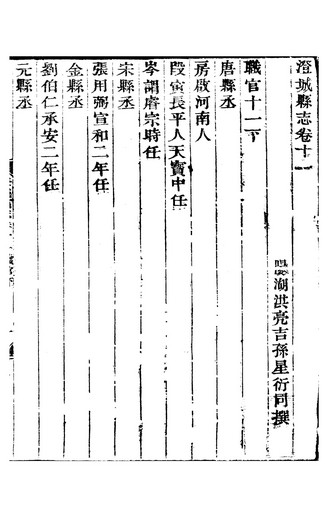 澄城縣志卷十一
陽湖洪亮吉孫星衍同撰
職官十一下
唐縣丞
房啟河南人
段寅長平人天寶中任
岑謂睿宗時任
宋縣丞
張用弼宣和二年任
金縣丞
劉伯仁承安二年任
元縣丞